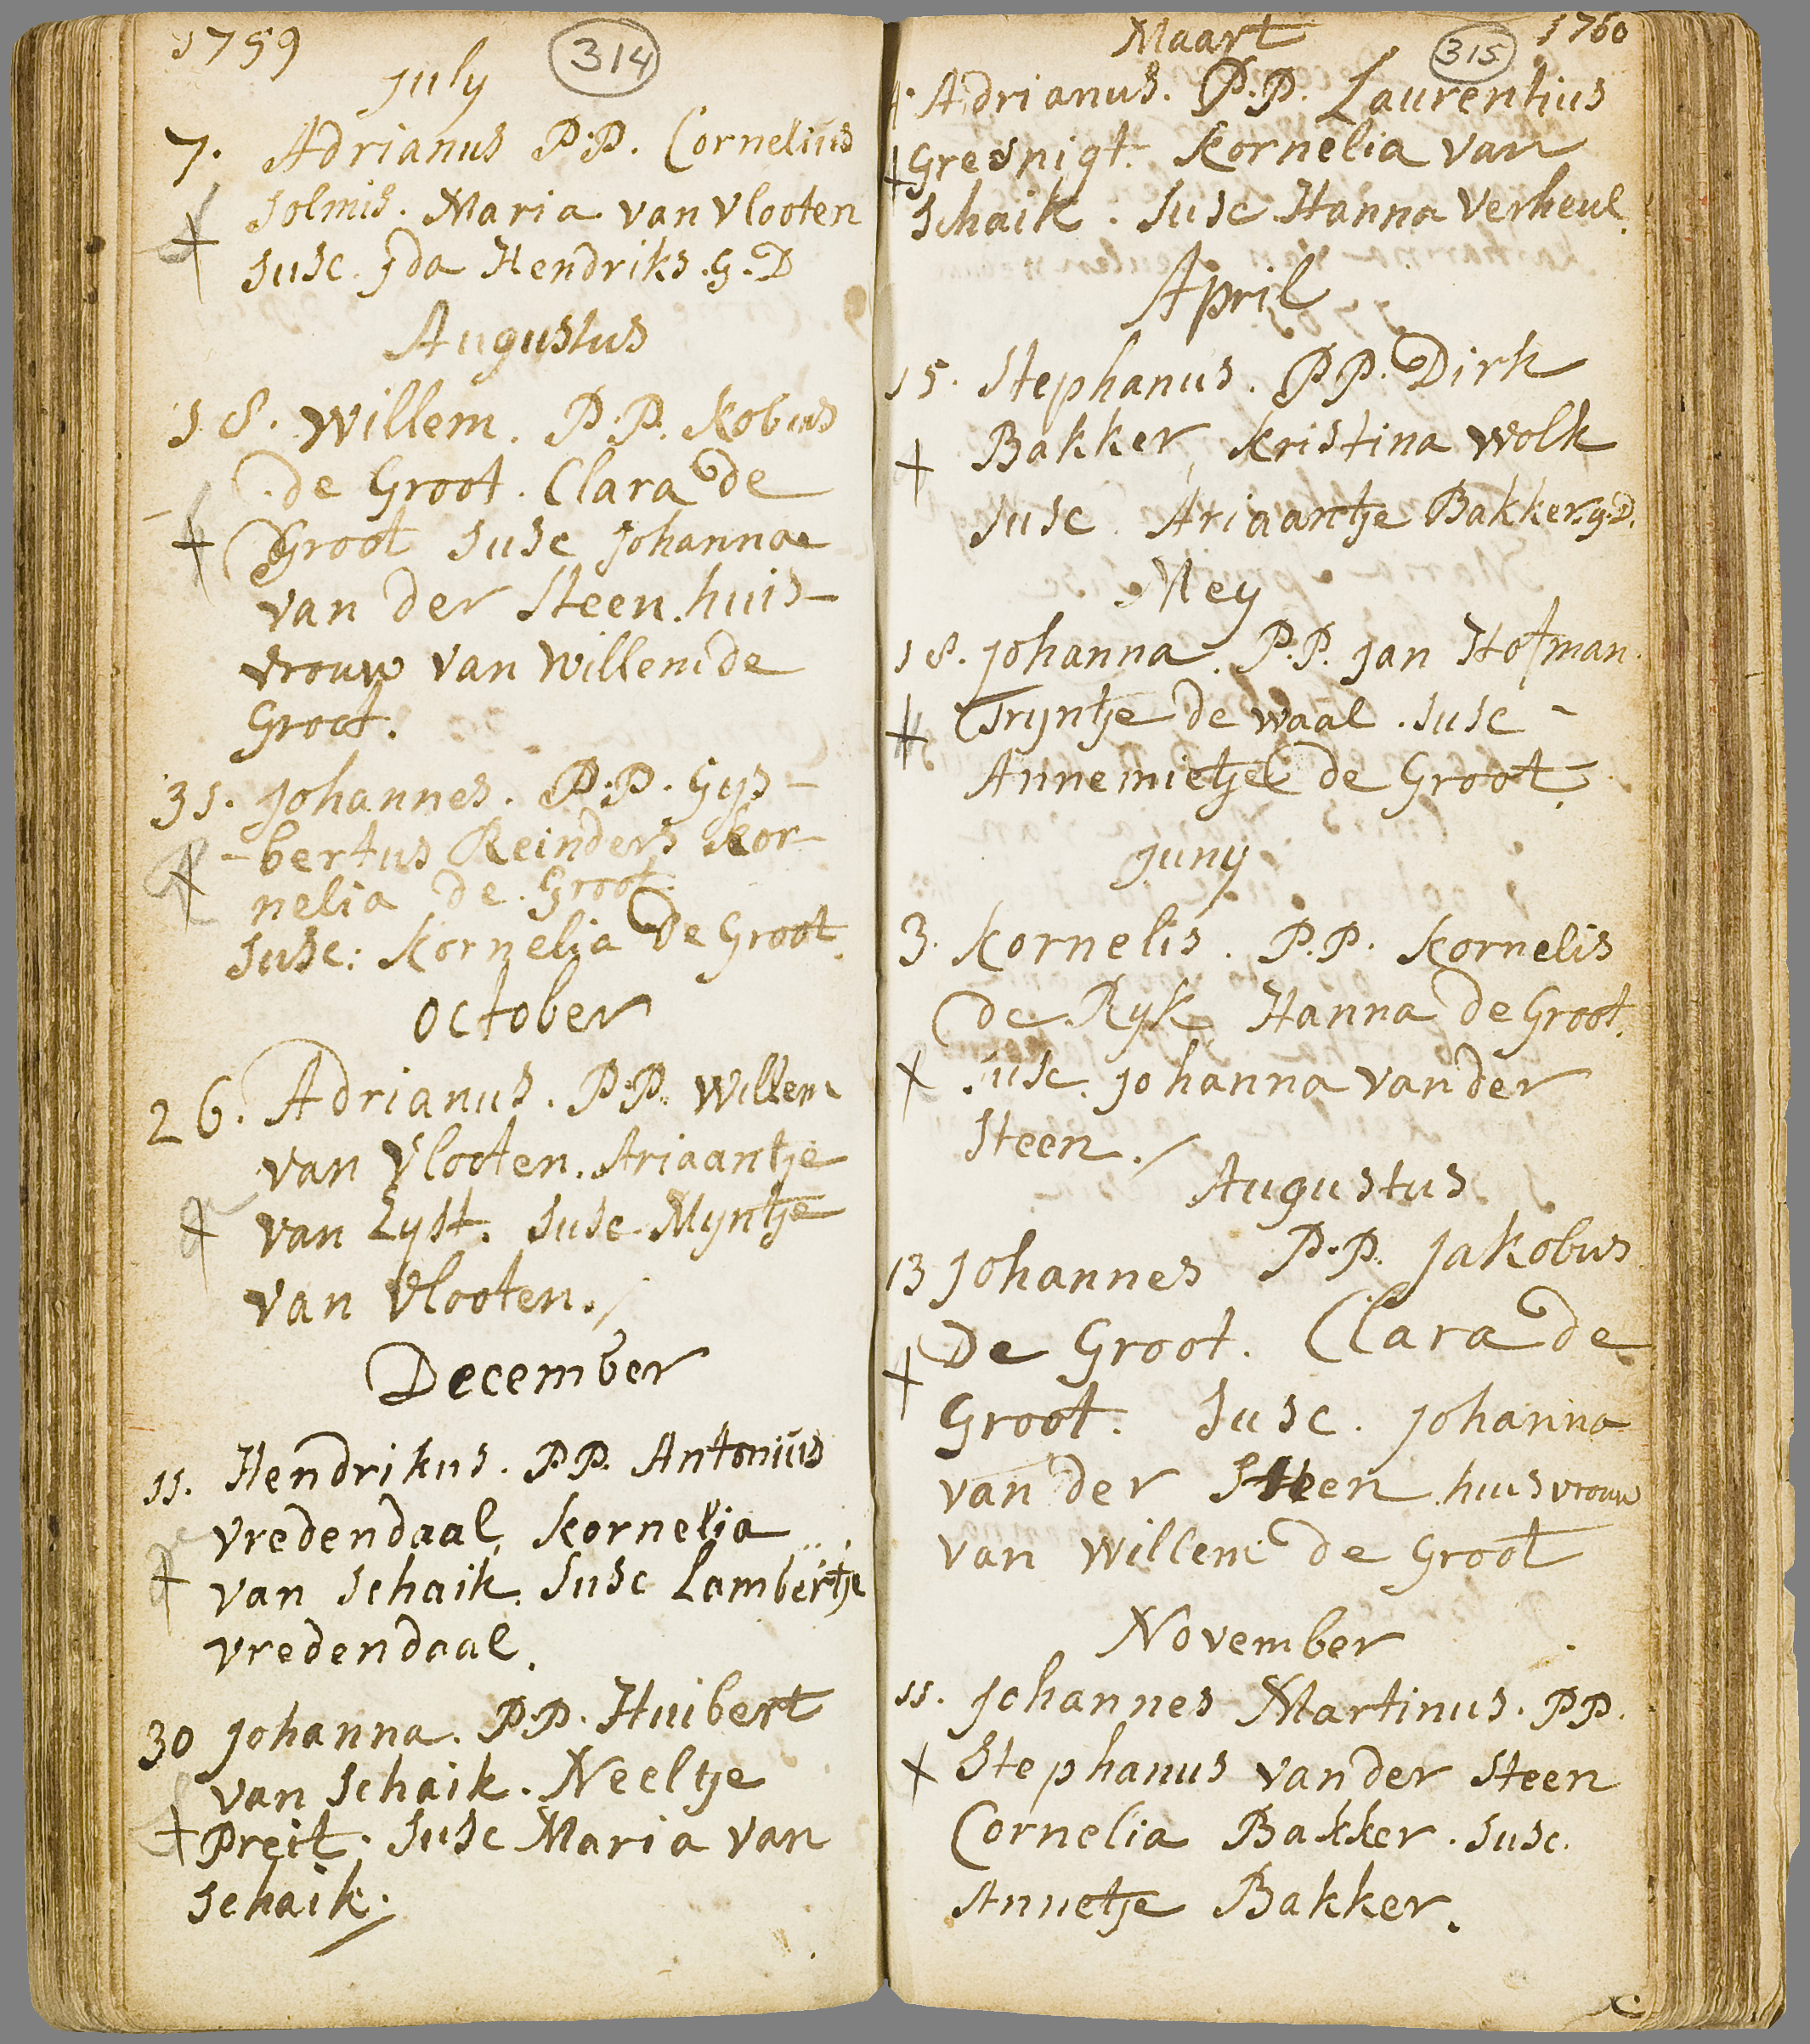 1759
314
july
7. Adrianus P.P. Cornelius
Solmis. Maria van Vlooten
Susc. Ida Hendriks. G. D
Augustus
18. Willem. P.P. Kobus
de Groot. Clara de
Groot Susc Johanna
van der Steen huis-
vrouw van Willem de
Groot.
31. Johannes. P.P. Gys-
-bertus Reinders Kor-
nelia de Groot.
Susc: Kornelia De Groot.
October
26. Adrianus. P.P. Willem
van Vlooten. Ariaantje
van Zyst. Susc Myntje
van Vlooten./
December
11. Hendrikus. P.P. Antonius
vredendaal, Kornelia
van Schaik. Susc Lambertje
vredendaal.
30 Johanna. P.P. Huibert
van Schaik. Neeltje
Preit. Susc Maria van
Schaik.
Maart
315
1760
Adrianus. P.P. Laurentius
Gresnigt. Kornelia van
Schaik. Susc. Hanna Verheul.
April
15. Stephanus. P.P. Dirk
Bakker, Kristina Wolk
Susc. Ariaantje Bakker. g. D.
Mey
18. Johanna. P.P. Jan Hofman.
Tryntje de waal. Susc -
Annemietje de Groot.
Juny
3. Kornelis. P.P. Kornelis
de Ryk Hanna de Groot.
Susc. Johanna van der
Steen./
Augustus
13 Johannes P.P. Jakobus
De Groot. Clara de
Groot. Susc. Johanna
van der Steen huisvrouw
van Willem de Groot
November
11. Johannes Martinus. P.P.
Stephanus van der Steen
Cornelia Bakker. Susc.
Annetje Bakker.